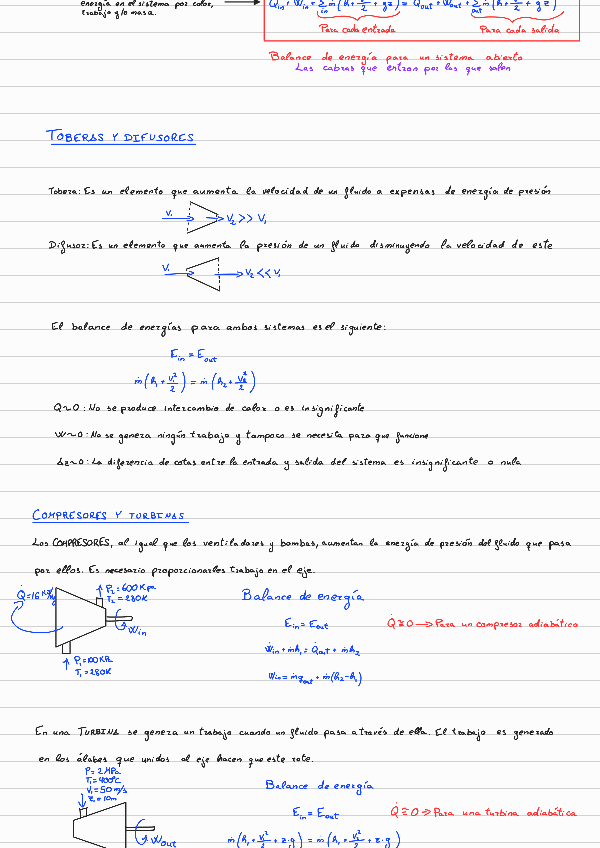 energía en el sistema por calor,
trabajo y/o masa.
Q̇in + Ẇin + Σin ṁ(h + V²/2 + gz) = Q̇out + Ẇout + Σout ṁ(h + V²/2 + gz)
Para cada entrada Para cada salida
Balance de energía para un sistema abierto
Las cabras que entran por las que salen
TOBERAS Y DIFUSORES
Tobera: Es un elemento que aumenta la velocidad de un fluido a expensas de energía de presión
V₁ V₂ >> V₁
Difusor: Es un elemento que aumenta la presión de un fluido disminuyendo la velocidad de este
V₁ V₂ << V₁
El balance de energías para ambos sistemas es el siguiente:
Ein = Eout
ṁ(h₁ + V₁²/2) = ṁ(h₂ + V₂²/2)
Q~0: No se produce intercambio de calor o es insignificante
W~0: No se genera ningún trabajo y tampoco se necesita para que funcione
Δz~0: La diferencia de cotas entre la entrada y salida del sistema es insignificante o nula
COMPRESORES Y TURBINAS
Los COMPRESORES, al igual que los ventiladores y bombas, aumentan la energía de presión del fluido que pasa
por ellos. Es necesario proporcionarles trabajo en el eje.
Q̇=16 KJ/Kg
P₂=600 KPa
T₂=280K
Win
P₁=100 KPa
T₁=280K
Balance de energía
Ein = Eout
Q̇≅0 → Para un compresor adiabático
Ẇin + ṁh₁ = Q̇out + ṁh₂
Ẇin = ṁqout + ṁ(h₂-h₁)
En una TURBINA se genera un trabajo cuando un fluido pasa a través de ella. El trabajo es generado
en los álabes que unidos al eje hacen que este rote.
P=2 MPa
T₁=400°C
V₁=50 m/s
z₁=10m
Wout
Balance de energía
Ein = Eout
Q̇≅0 → Para una turbina adiabática
ṁ(h₁ + V₁²/2 + z·g) = ṁ(h₁ + V₁²/2 + z·g)